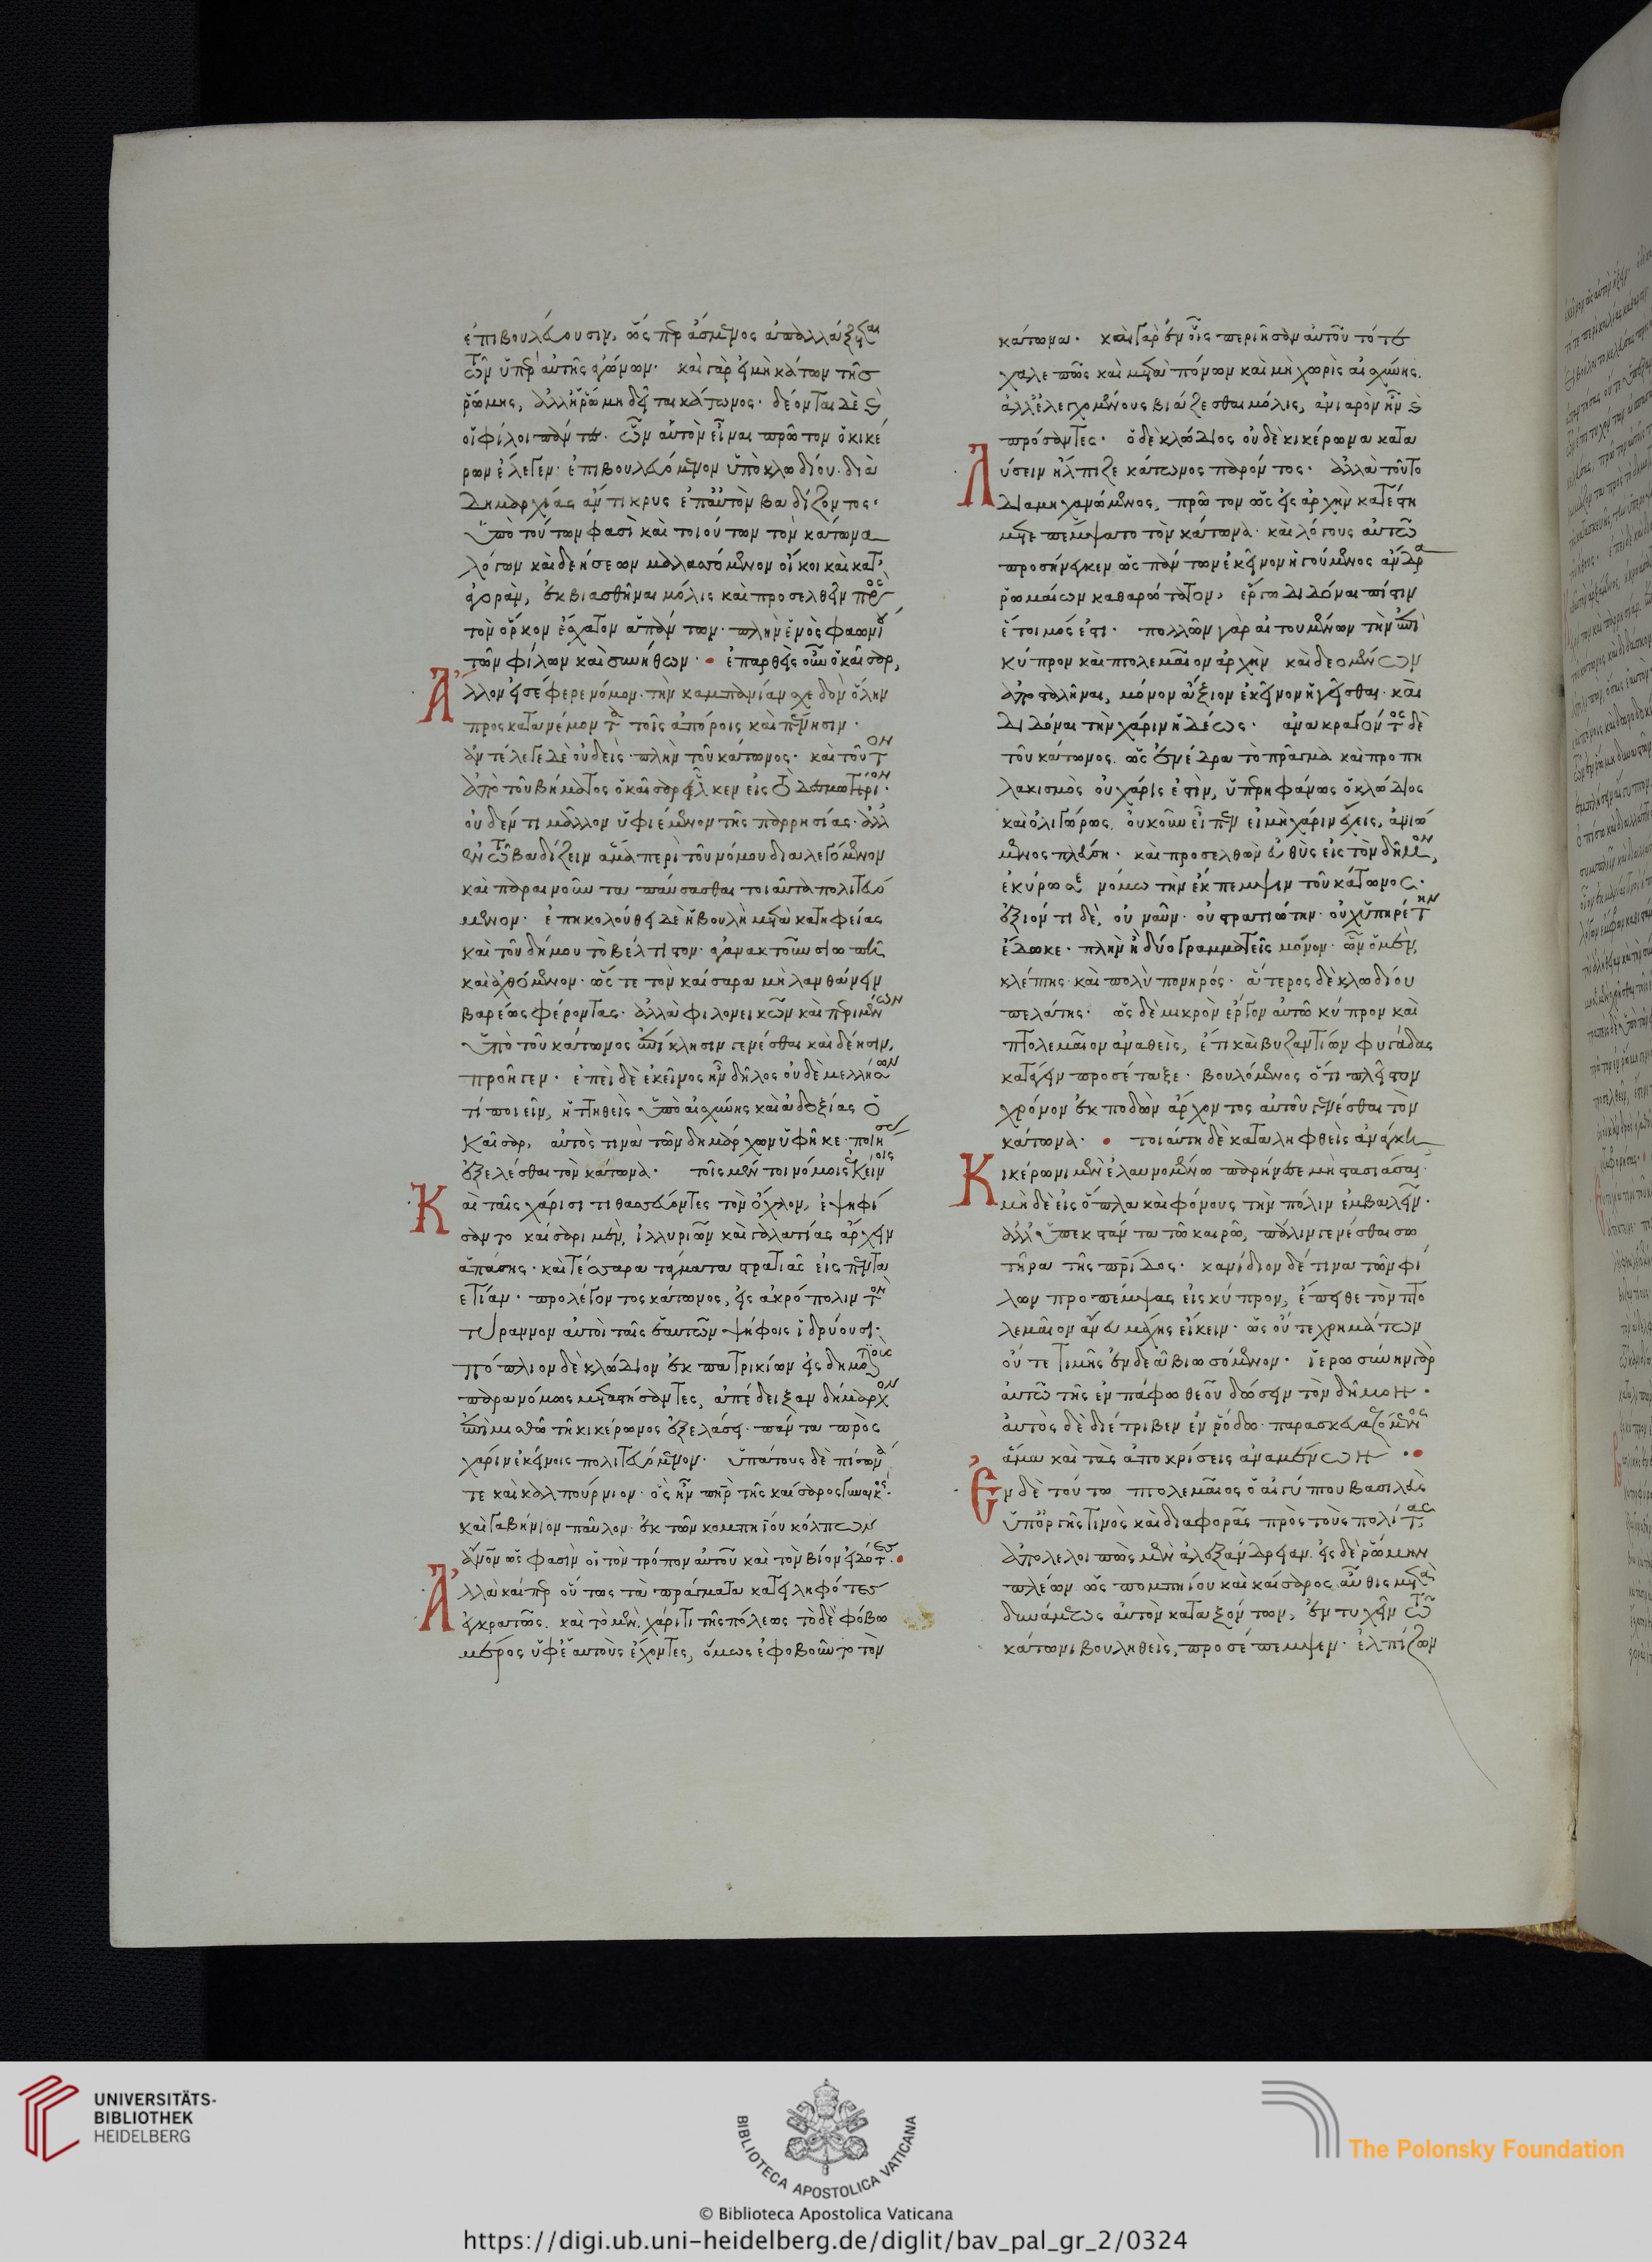 ἐπιβουλεύουσιν, ὡς περ ἄσμενος ἀπαλλάξεται
τῶν ὑπὲρ αὐτῆς ἀγώνων· καὶ γὰρ εἰ μὴ κάτων τῆς
ῥώμης, ἀλλ' ἡ ῥώμη δεῖται κάτωνος· δέονται δὲ καὶ
οἱ φίλοι πάντες· ὧν αὐτὸν εἶναι πρῶτον ὁ κικέ
ρων ἔλεγεν· ἐπιβουλευόμενον ὑπὸ κλωδίου· διὰ
δημαρχίας ἄντικρυς ἐπ' αὐτὸν βαδίζοντος·
ὑπὸ τούτων φασὶ καὶ τοιούτων τὸν κάτωνα
λόγων καὶ δεήσεων μαλασσόμενον οἴκοι καὶ κατ'
ἀγορὰν, ἐκβιασθῆναι μόλις καὶ προσελθεῖν πρὸς
τὸν ὅρκον ἔσχατον ἁπάντων· πλὴν ἑνὸς φαωνίου
τῶν φίλων καὶ συνήθων· ἐπαρθεὶς οὖν ὁ καῖσαρ,
Ἄλλον εἰσέφερε νόμον· τὴν καμπανίαν σχεδὸν ὅλην
προσκατανέμοντα τοῖς ἀπόροις καὶ πένησιν·
ἀντέλεγε δὲ οὐδεὶς πλὴν τοῦ κάτωνος· καὶ τοῦτον
ἀπὸ τοῦ βήματος ὁ καῖσαρ εἷλκεν εἰς τὸ δεσμωτήριον·
οὐδέν τι μᾶλλον ὑφιέμενον τῆς παρρησίας· ἀλλ'
ἐν τῷ βαδίζειν ἅμα περὶ τοῦ νόμου διαλεγόμενον
καὶ παραινοῦντα παύσασθαι τοιαῦτα πολιτευό
μενον· ἐπηκολούθει δὲ ἡ βουλὴ μετὰ κατηφείας
καὶ τοῦ δήμου τὸ βέλτιστον ἀγανακτοῦν σιωπῇ
καὶ ἀχθόμενον· ὥστε τὸν καίσαρα μὴ λανθάνειν
βαρέως φέροντας· ἀλλὰ φιλονεικῶν καὶ περιμένων
ὑπὸ τοῦ κάτωνος ἐπίκλησιν γενέσθαι καὶ δέησιν,
προῆγεν· ἐπεὶ δὲ ἐκεῖνος ἦν δῆλος οὐδὲ μελλήσων
τί ποιεῖν, ἡττηθεὶς ὑπὸ αἰσχύνης καὶ ἀδοξίας ὁ
καῖσαρ, αὐτός τινα τῶν δημάρχων ὑφῆκε· ποίησας
ἐξελέσθαι τὸν κάτωνα· τοῖς μέν τοι νόμοις ἐκείνοις
Καὶ ταῖς χάρισι τιθασσεύοντες τὸν ὄχλον, ἐψηφί
σαντο καίσαρι μὲν, ἰλλυριῶν καὶ γαλατίας ἄρχειν
ἁπάσης· καὶ τέσσαρα τάγματα στρατιᾶς εἰς πεντα
ετίαν· προλέγοντος κάτωνος, εἰς ἀκρόπολιν τὸν
τύραννον αὐτοὶ ταῖς ἑαυτῶν ψήφοις ἱδρύουσι·
πόπλιον δὲ κλώδιον ἐκ πατρικίων εἰς δημότους
παρανόμως μεταστήσαντες, ἀπέδειξαν δήμαρχον
ἐπὶ μισθῷ τῇ κικέρωνος ἐξελάσει· πάντα πρὸς
χάριν ἐκείνοις πολιτευόμενον· ὑπάτους δὲ πίσωνά
τε καὶ καλπούρνιον· ὃς ἦν πατὴρ τῆς καίσαρος γυναικὸς·
καὶ γαβήνιον παῦλον· ἐκ τῶν πομπηίου κόλπων
ἄνθρωπον ὥς φασὶν οἱ τὸν τρόπον αὐτοῦ καὶ τὸν βίον εἰδότες·
Ἀλλὰ καίπερ οὕτως τὰ πράγματα κατειληφότες
ἐγκρατῶς. καὶ τὸ μὲν, χάριτι τῆς πόλεως τὸ δὲ φόβῳ
μέρος ὑφ' ἑαυτοὺς ἔχοντες, ὅμως ἐφοβοῦντο τὸν
κάτωνα· καὶ γὰρ ἐν οἷς περιῆσαν αὐτοῦ τό τε
χαλεπῶς καὶ μετὰ πόνων καὶ μὴ χωρὶς αἰσχύνης.
ἀλλ' ἐλεγχομένους βιάζεσθαι μόλις, ἀνιαρὸν ἦν καὶ
πρόσαντες· ὁ δὲ κλώδιος οὐδὲ κικέρωνα κατα
Λύσειν ἤλπιζε κάτωνος παρόντος· ἀλλὰ τοῦτο
διαμηχανώμενος, πρῶτον ὡς εἰς ἀρχὴν κατέστη
μετεπέμψατο τὸν κάτωνα· καὶ λόγους αὐτῷ
προσήνεγκεν ὡς πάντων ἐκεῖνον ἡγούμενος ἄνδρα
ῥωμαίων καθαρώτατον, ἔργῳ διδόναι πίστιν
ἕτοιμός ἐστι· πολλῶν γὰρ αἰτουμένων τὴν ἐπὶ
κύπρον καὶ πτολεμαῖον ἀρχὴν καὶ δεομένων
ἀποσταλῆναι, μόνον ἄξιον ἐκεῖνον ἡγεῖσθαι· καὶ
διδόναι τὴν χάριν ἡδέως· ἀνακραγόντος δὲ
τοῦ κάτωνος. ὡς ἐνέδρα τὸ πρᾶγμα καὶ προπη
λακισμὸς οὐ χάρις ἐστὶν, ὑπερηφάνως ὁ κλώδιος
καὶ ὀλιγώρως. οὐκοῦν εἶπεν εἰ μὴ χάριν ἔχεις, ἀνιώ
μενος πλεύσῃ· καὶ προσελθὼν εὐθὺς εἰς τὸν δῆμον,
ἐκύρωσε νόμῳ τὴν ἔκπεμψιν τοῦ κάτωνος·
ἐξιόντι δὲ, οὐ ναῦν· οὐ στρατιώτην· οὐχ ὑπηρέτην
ἔδωκε· πλὴν ἢ δύο γραμματεῖς μόνον· ὧν ὁ μὲν,
κλέπτης καὶ πολὺ πονηρός· ἅτερος δὲ κλωδίου
πελάτης· ὡς δὲ μικρὸν ἔργον αὐτῷ κύπρον καὶ
πτολεμαῖον ἀναθεὶς, ἔτι καὶ βυζαντίων φυγάδας
κατάγειν προσέταξε· βουλόμενος ὅτι πλεῖστον
χρόνον ἐκποδὼν ἄρχοντος αὐτοῦ γενέσθαι τὸν
κάτωνα· τοιαύτη δὲ καταληφθεὶς ἀνάγκῃ
Κικέρωνι μὲν ἐλαυνομένῳ παρῄνεσε μὴ στασιάσαι·
μὴ δὲ εἰς ὅπλα καὶ φόνους τὴν πόλιν ἐμβαλεῖν·
ἀλλ' ὑπεκστάντα τῷ καιρῷ, πάλιν γενέσθαι σω
τῆρα τῆς πατρίδος· κανίδιον δέ τινα τῶν φί
λων προπέμψας εἰς κύπρον, ἔπειθε τὸν πτο
λεμαῖον ἄνευ μάχης εἴκειν· ὡς οὔτε χρημάτων
οὔτε τιμῆς ἐνδεᾶ βιωσόμενον· ἱερωσύνην γὰρ
αὐτῷ τῆς ἐν πάφῳ θεοῦ δώσειν τὸν δῆμον·
αὐτὸς δὲ διέτριβεν ἐν ῥόδῳ παρασκευαζόμενος
ἅμα καὶ τὰς ἀποκρίσεις ἀναμένων·
Ἐν δὲ τούτῳ πτολεμαῖος ὁ αἰγύπτου βασιλεὺς
ὑπ' ὀργῆς τινὸς καὶ διαφορᾶς πρὸς τοὺς πολίτας
ἀπολελοιπὼς μὲν ἀλεξάνδρειαν. εἰς δὲ ῥώμην
πλέων ὡς πομπηίου καὶ καίσαρος αὖθις μετὰ
δυνάμεως αὐτὸν καταξόντων, ἐντυχεῖν τῷ
κάτωνι βουληθεὶς, προσέπεμψεν· ἐλπίζων
UNIVERSITÄTS-
BIBLIOTHEK
HEIDELBERG
BIBLIOTECA APOSTOLICA VATICANA
The Polonsky Foundation
© Biblioteca Apostolica Vaticana
https://digi.ub.uni-heidelberg.de/diglit/bav_pal_gr_2/0324